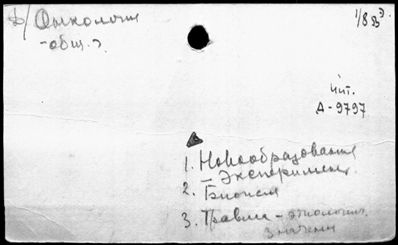 Д/ Онкология
- общ. э.
1/8 53 э.
Чит.
Д-9797
1. Новообразования
- Эксперимент.
2. Биопсия
3. Травма - этиологич.
значение